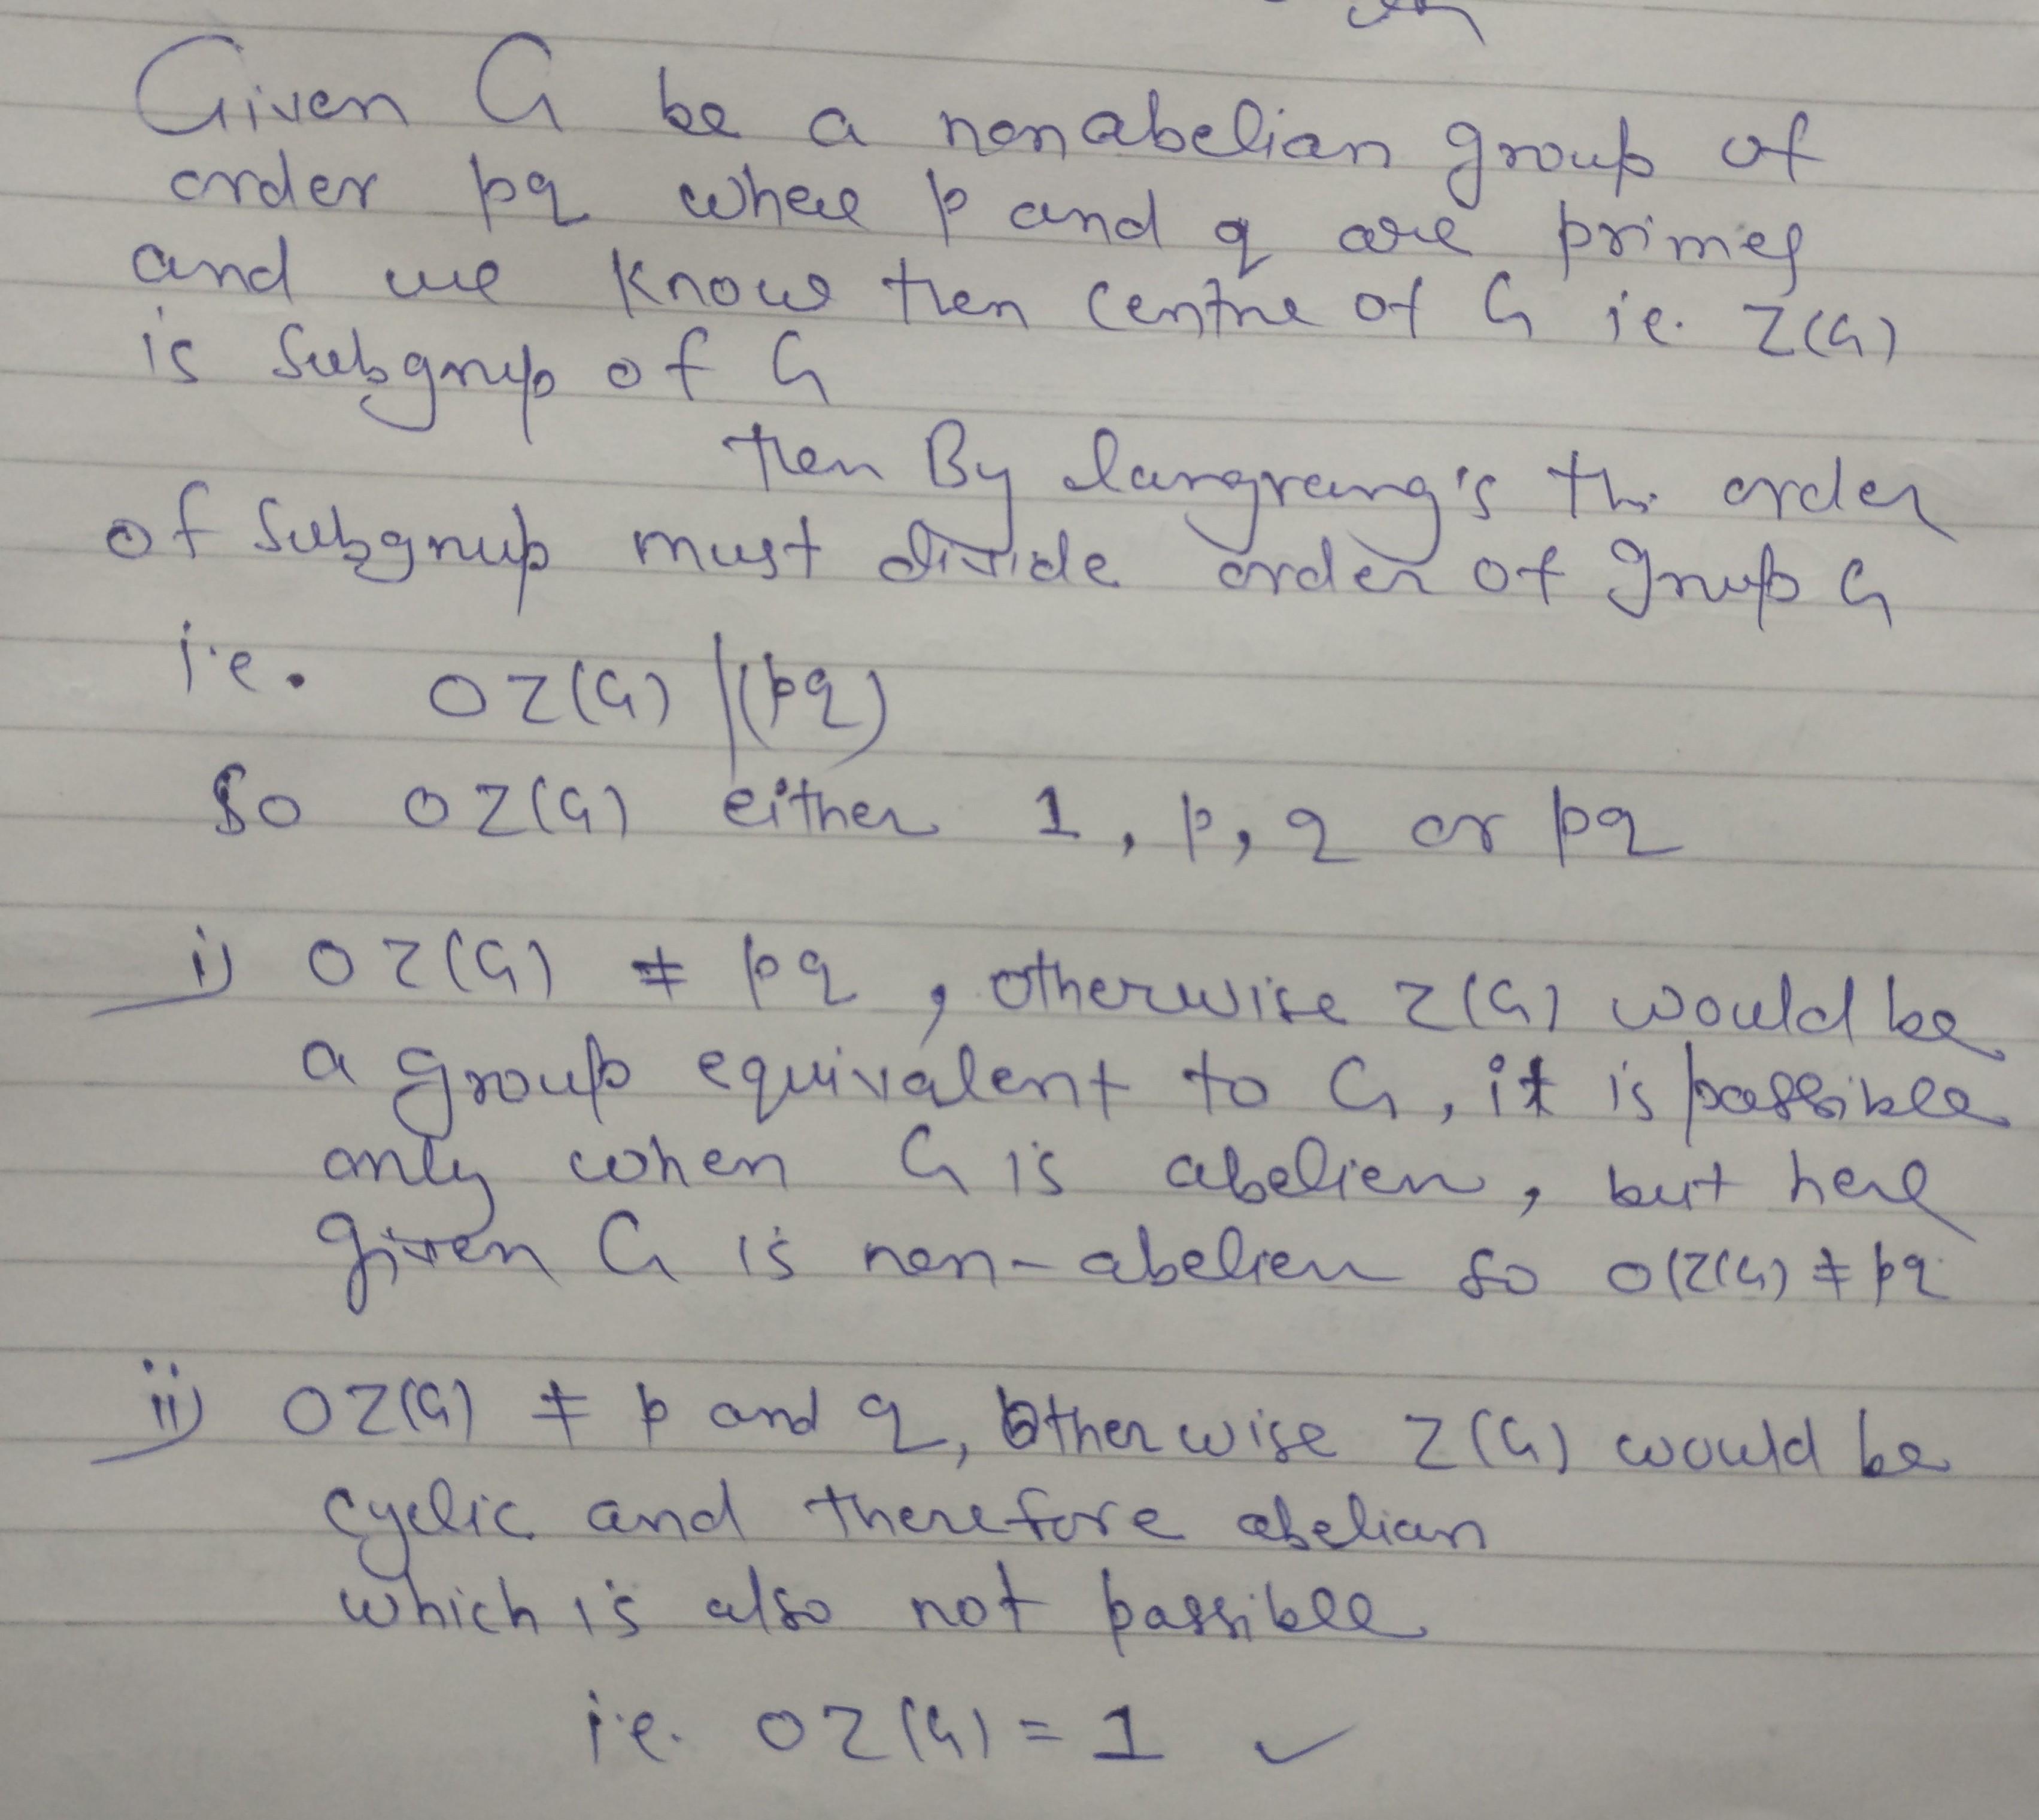 Given G be a nonabelian group of
order pq where p and q are primes
and we know then centre of G i.e. Z(G)
is Subgroup of G
then By langrang's th. order
of Subgroup must divide order of group G
i.e. OZ(G) |(pq)
So OZ(G) either 1, p, q or pq
i) OZ(G) ≠ pq, otherwise Z(G) would be
a group equivalent to G, it is possible
only when G is abelien, but here
given G is non-abelien so O(Z(G) ≠ pq
ii) OZ(G) ≠ p and q, Otherwise Z(G) would be
cyclic and therefore abelian
which is also not possible
i.e. OZ(G) = 1 ✓